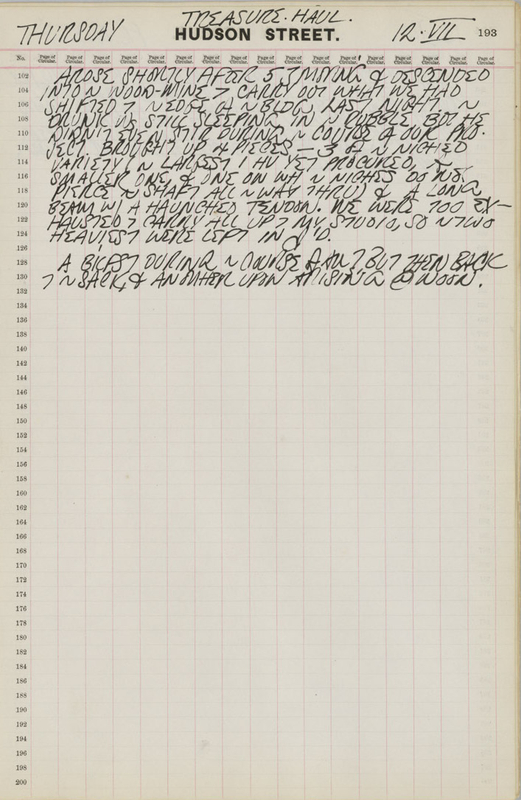 TREASURE·HAUL.
THURSDAY HUDSON STREET. 12·VII 193
No. Page of Circular. Page of Circular. Page of Circular. Page of Circular. Page of Circular. Page of Circular. Page of Circular. Page of Circular. Page of Circular. Page of Circular. Page of Circular. Page of Circular. Page of Circular. Page of Circular. Page of Circular. Page of Circular. Page of Circular.
102 AROSE SHORTLY AFTER 5, & DESCENDED
104 INTO ~ WOOD-MINE 7 CARRY OUT WHAT WE HAD
106 SHIFTED 7 ~ EDGE OF ~ BLDG LAST NIGHT. ~
108 DRUNK WS STILL SLEEPING IN ~ RUBBLE BUT HE
110 DIDN'T EVEN STIR DURING ~ COURSE OF OUR PRO-
112 JECT. BROUGHT UP 4 PIECES — 3 OF ~ NICHED
114 VARIETY (~ LARGEST I HV YET PROCURED, ~
116 SMALLER ONE, & ONE ON WH ~ NICHES DO NOT
118 PIERCE ~ SHAFT ALL ~ WAY THRU) & A LONG
120 BEAM W/ A HAUNCHED TENDON. WE WERE TOO EX-
122 HAUSTED 7 CARRY ALL UP 7 MY STUDIO, SO ~ TWO
124 HEAVIEST WERE KEPT IN
126
128 A BKFST DURING ~ COURSE BUT THEN BACK
130 7 ~ SACK, & ANOTHER UPON ARISING @ NOON.
132
134
136
138
140
142
144
146
148
150
152
154
156
158
160
162
164
166
168
170
172
174
176
178
180
182
184
186
188
190
192
194
196
198
200